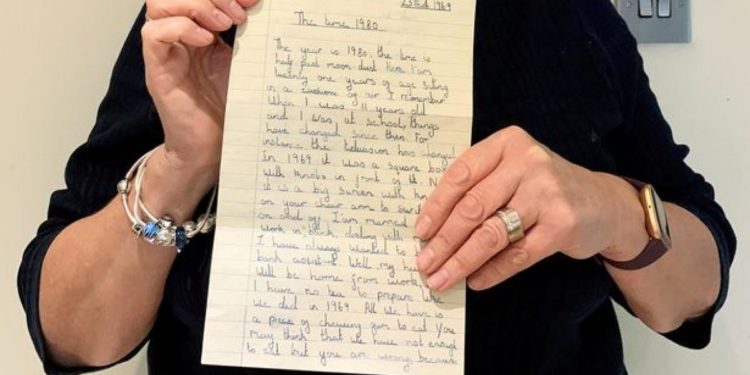 23rd 1969
The time 1980
The year is 1980, the time is
half past moon dust. Here I am
twenty one years of age siting
in a cushione of air I remember
When I was 11 years old
and I was at school, things
have changed since then. For
instance the television has changed
In 1969 it was a square box
with knobs in front of it. N
it is a big screen with kn
on your chair arm to switc
on and off. I am married
work in bank, dealing with m
I have always wanted to
bank assist Well my hu
Will be home from work
I have no tea to prepare like
We did in 1969. All we have is
a piece of chewing gum to eat You
may think that we have not enough
to eat but you are wrong, because